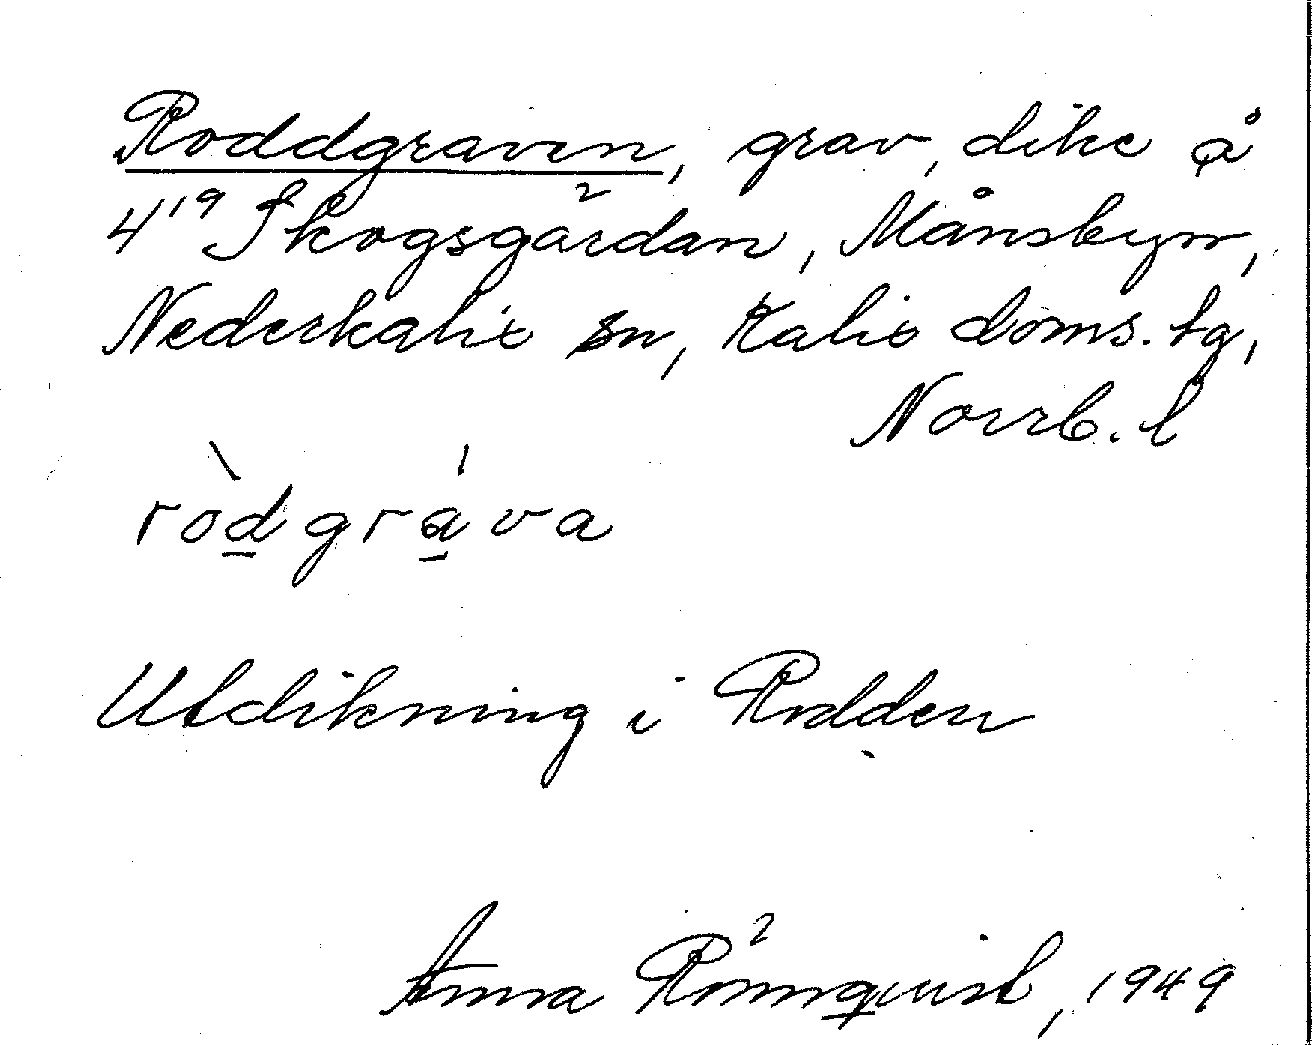 Roddgraven, grav, dike å
4¹⁹ Skogsgärdan, Månsbyn,
Nederkalix sn, Kalix doms. tg,
Norrb. l
ròd̲grá̲va
Utdikning i Rodden
Anna Rönnqvist, 1949